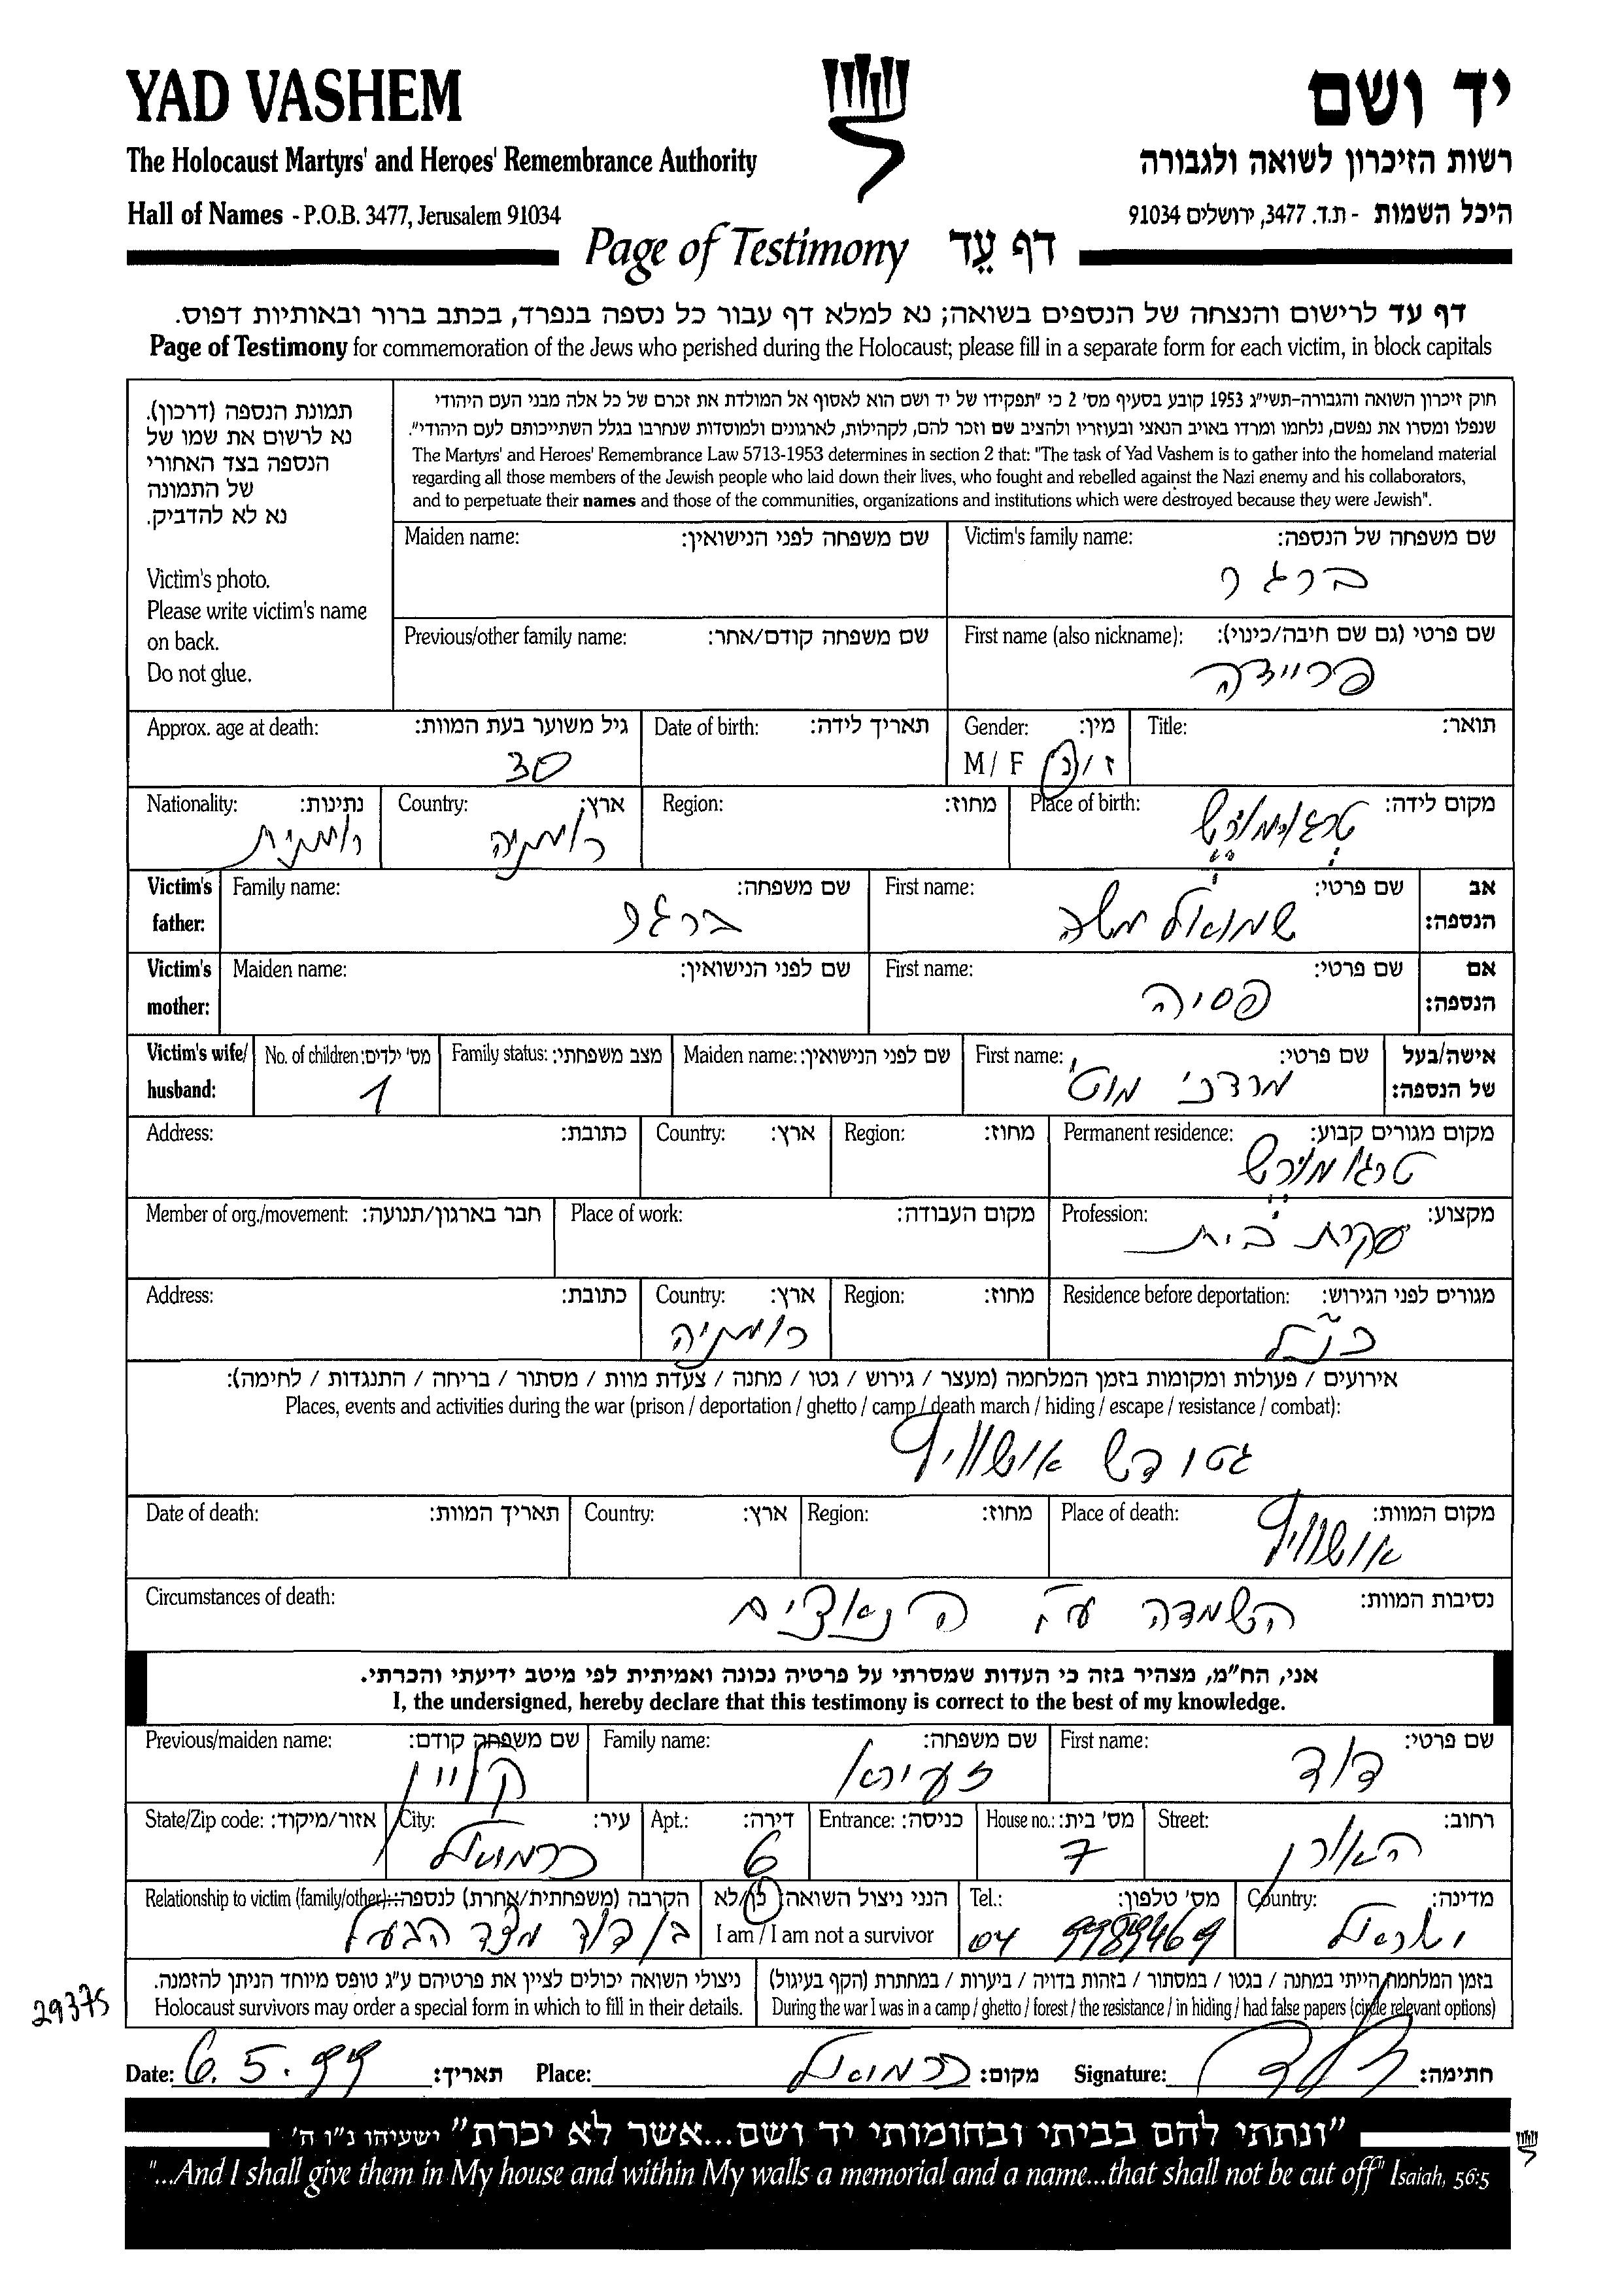 YAD VASHEM
יד ושם
The Holocaust Martyrs' and Heroes' Remembrance Authority
רשות הזיכרון לשואה ולגבורה
Hall of Names - P.O.B. 3477, Jerusalem 91034
היכל השמות - ת.ד. 3477, ירושלים 91034
Page of Testimony דף עֵד
דף עד לרישום והנצחה של הנספים בשואה; נא למלא דף עבור כל נספה בנפרד, בכתב ברור ובאותיות דפוס.
Page of Testimony for commemoration of the Jews who perished during the Holocaust; please fill in a separate form for each victim, in block capitals
תמונת הנספה (דרכון).
נא לרשום את שמו של
הנספה בצד האחורי
של התמונה
נא לא להדביק.
Victim's photo.
Please write victim's name
on back.
Do not glue.
חוק זיכרון השואה והגבורה-תשי"ג 1953 קובע בסעיף מס' 2 כי "תפקידו של יד ושם הוא לאסוף אל המולדת את זכרם של כל אלה מבני העם היהודי
שנפלו ומסרו את נפשם, נלחמו ומרדו באויב הנאצי ובעוזריו ולהציב שם וזכר להם, לקהילות, לארגונים ולמוסדות שנחרבו בגלל השתייכותם לעם היהודי".
The Martyrs' and Heroes' Remembrance Law 5713-1953 determines in section 2 that: "The task of Yad Vashem is to gather into the homeland material
regarding all those members of the Jewish people who laid down their lives, who fought and rebelled against the Nazi enemy and his collaborators,
and to perpetuate their names and those of the communities, organizations and institutions which were destroyed because they were Jewish".
Maiden name: שם משפחה לפני הנישואין: Victim's family name: שם משפחה של הנספה:
ברגר
Previous/other family name: שם משפחה קודם/אחר: First name (also nickname): שם פרטי (גם שם חיבה/כינוי):
פריידה
Approx. age at death: גיל משוער בעת המוות: Date of birth: תאריך לידה: Gender: מין: Title: תואר:
30 M / F ז / נ
Nationality: נתינות: Country: ארץ: Region: מחוז: Place of birth: מקום לידה:
רומנית רומניה טרגו מורש
Victim's father: Family name: שם משפחה: First name: שם פרטי: אב הנספה:
ברגר שמואל משה
Victim's mother: Maiden name: שם לפני הנישואין: First name: שם פרטי: אם הנספה:
פסיה
Victim's wife/ husband: No. of children: מס' ילדים: Family status: מצב משפחתי: Maiden name: שם לפני הנישואין: First name: שם פרטי: אישה/בעל של הנספה:
1 מרדכי מוטי
Address: כתובת: Country: ארץ: Region: מחוז: Permanent residence: מקום מגורים קבוע:
טרגו מורש
Member of org./movement: חבר בארגון/תנועה: Place of work: מקום העבודה: Profession: מקצוע:
עקרת בית
Address: כתובת: Country: ארץ: Region: מחוז: Residence before deportation: מגורים לפני הגירוש:
רומניה כנ"ל
אירועים / פעולות ומקומות בזמן המלחמה (מעצר / גירוש / גטו / מחנה / צעדת מוות / מסתור / בריחה / התנגדות / לחימה):
Places, events and activities during the war (prison / deportation / ghetto / camp / death march / hiding / escape / resistance / combat):
גטו דש אושוויץ
Date of death: תאריך המוות: Country: ארץ: Region: מחוז: Place of death: מקום המוות:
אושוויץ
Circumstances of death: נסיבות המוות:
השמדה ע"י הנאצים
אני, הח"מ, מצהיר בזה כי העדות שמסרתי על פרטיה נכונה ואמיתית לפי מיטב ידיעתי והכרתי.
I, the undersigned, hereby declare that this testimony is correct to the best of my knowledge.
Previous/maiden name: שם משפחה קודם: Family name: שם משפחה: First name: שם פרטי:
קליין זעירא דוד
State/Zip code: אזור/מיקוד: City: עיר: Apt.: דירה: Entrance: כניסה: House no.: מס' בית: Street: רחוב:
כרמיאל 6 7 האורן
Relationship to victim (family/other): הקרבה (משפחתית/אחרת) לנספה: הנני ניצול השואה: כן/לא Tel.: מס' טלפון: Country: מדינה:
בן דוד מצד הבעל I am / I am not a survivor 04 9989469 ישראל
ניצולי השואה יכולים לציין את פרטיהם ע"ג טופס מיוחד הניתן להזמנה. בזמן המלחמה הייתי במחנה / בגטו / במסתור / בזהות בדויה / ביערות / במחתרת (הקף בעיגול)
Holocaust survivors may order a special form in which to fill in their details. During the war I was in a camp / ghetto / forest / the resistance / in hiding / had false papers (circle relevant options)
29375
Date: 6.5.99 תאריך: Place: כרמיאל מקום: Signature: חתימה:
"ונתתי להם בביתי ובחומותי יד ושם...אשר לא יכרת" ישעיהו נ"ו ה'
"...And I shall give them in My house and within My walls a memorial and a name...that shall not be cut off" Isaiah, 56:5